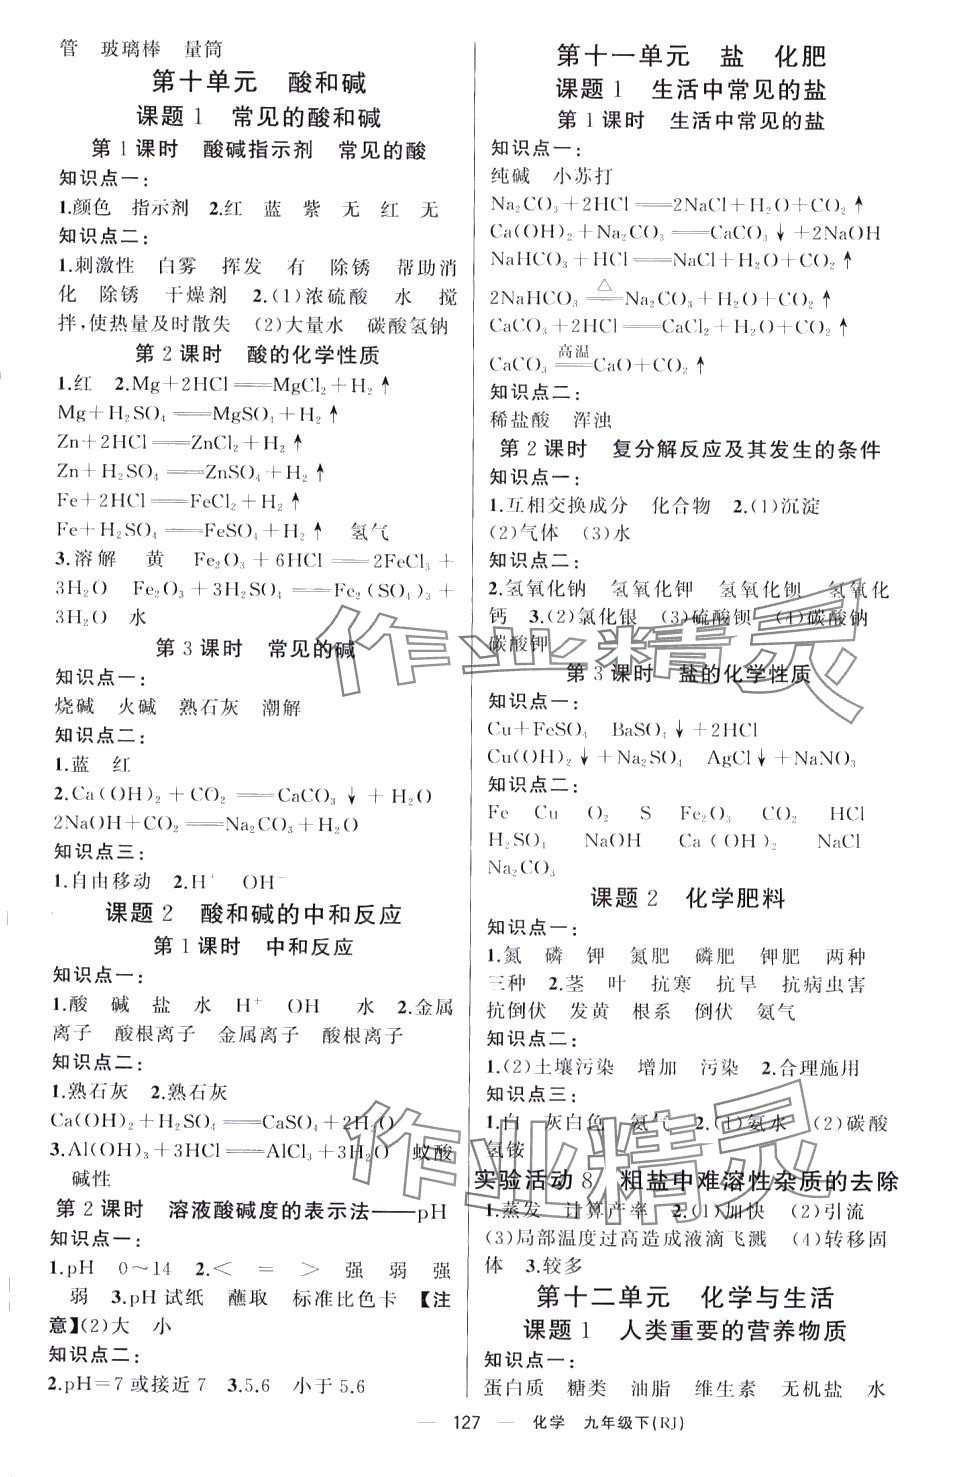 管　玻璃棒　量筒
第十单元　酸和碱
课题1　常见的酸和碱
第1课时　酸碱指示剂　常见的酸
知识点一:
1.颜色　指示剂　2.红　蓝　紫　无　红　无
知识点二:
1.刺激性　白雾　挥发　有　除锈　帮助消
化　除锈　干燥剂　2.(1)浓硫酸　水　搅
拌,使热量及时散失　(2)大量水　碳酸氢钠
第2课时　酸的化学性质
1.红　2.Mg+2HCl══MgCl₂+H₂↑
Mg+H₂SO₄══MgSO₄+H₂↑
Zn+2HCl══ZnCl₂+H₂↑
Zn+H₂SO₄══ZnSO₄+H₂↑
Fe+2HCl══FeCl₂+H₂↑
Fe+H₂SO₄══FeSO₄+H₂↑　氢气
3.溶解　黄　Fe₂O₃+6HCl══2FeCl₃+
3H₂O　Fe₂O₃+3H₂SO₄══Fe₂(SO₄)₃+
3H₂O　水
第3课时　常见的碱
知识点一:
烧碱　火碱　熟石灰　潮解
知识点二:
1.蓝　红
2.Ca(OH)₂+CO₂══CaCO₃↓+H₂O
2NaOH+CO₂══Na₂CO₃+H₂O
知识点三:
1.自由移动　2.H⁺　OH⁻
课题2　酸和碱的中和反应
第1课时　中和反应
知识点一:
1.酸　碱　盐　水　H⁺　OH　水　2.金属
离子　酸根离子　金属离子　酸根离子
知识点二:
1.熟石灰　2.熟石灰
Ca(OH)₂+H₂SO₄══CaSO₄+2H₂O
3.Al(OH)₃+3HCl══AlCl₃+3H₂O　蚁酸
碱性
第2课时　溶液酸碱度的表示法——pH
知识点一:
1.pH　0～14　2.<　=　>　强　弱　强
弱　3.pH试纸　蘸取　标准比色卡　【注
意】(2)大　小
知识点二:
2.pH=7或接近7　3.5.6　小于5.6
第十一单元　盐　化肥
课题1　生活中常见的盐
第1课时　生活中常见的盐
知识点一:
纯碱　小苏打
Na₂CO₃+2HCl══2NaCl+H₂O+CO₂↑
Ca(OH)₂+Na₂CO₃══CaCO₃↓+2NaOH
NaHCO₃+HCl══NaCl+H₂O+CO₂↑
△
2NaHCO₃══Na₂CO₃+H₂O+CO₂↑
CaCO₃+2HCl══CaCl₂+H₂O+CO₂↑
高温
CaCO₃══CaO+CO₂↑
知识点二:
稀盐酸　浑浊
第2课时　复分解反应及其发生的条件
知识点一:
1.互相交换成分　化合物　2.(1)沉淀
(2)气体　(3)水
知识点二:
2.氢氧化钠　氢氧化钾　氢氧化钡　氢氧化
钙　3.(2)氯化银　(3)硫酸钡　(4)碳酸钠
碳酸钾
第3课时　盐的化学性质
知识点一:
Cu+FeSO₄　BaSO₄↓+2HCl
Cu(OH)₂↓+Na₂SO₄　AgCl↓+NaNO₃
知识点二:
Fe　Cu　O₂　S　Fe₂O₃　CO₂　HCl
H₂SO₄　NaOH　Ca(OH)₂　NaCl
Na₂CO₃
课题2　化学肥料
知识点一:
1.氮　磷　钾　氮肥　磷肥　钾肥　两种
三种　2.茎　叶　抗寒　抗旱　抗病虫害
抗倒伏　发黄　根系　倒伏　氨气
知识点二:
1.(2)土壤污染　增加　污染　2.合理施用
知识点三:
1.白　灰白色　氨气　2.(1)氨水　(2)碳酸
氢铵
实验活动8　粗盐中难溶性杂质的去除
1.蒸发　计算产率　2.(1)加快　(2)引流
(3)局部温度过高造成液滴飞溅　(4)转移固
体　3.较多
第十二单元　化学与生活
课题1　人类重要的营养物质
知识点一:
蛋白质　糖类　油脂　维生素　无机盐　水
作业精灵
作业精灵
— 127 —　化学　九年级下(RJ)